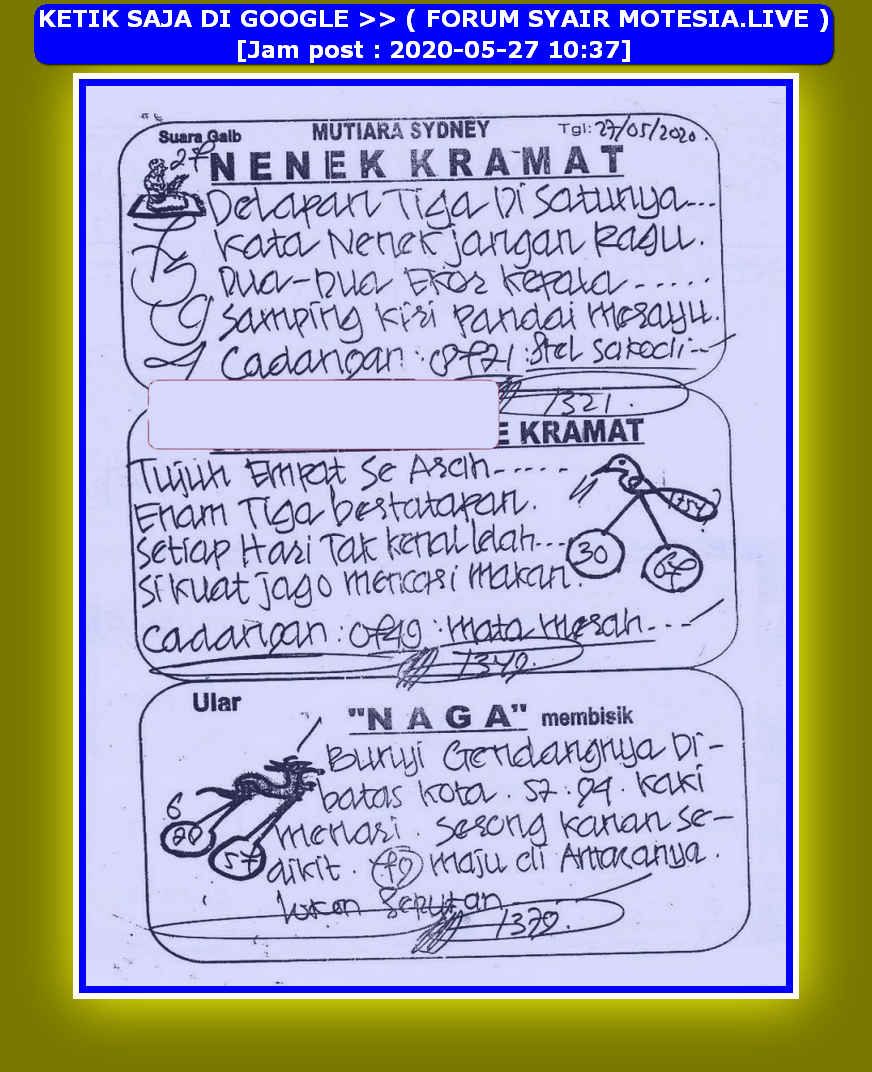 KETIK SAJA DI GOOGLE >> ( FORUM SYAIR MOTESIA.LIVE )
[Jam post : 2020-05-27 10:37]
Suara Gaib MUTIARA SYDNEY Tgl: 27/05/2020
27 NENEK KRAMAT
Delapan Tiga Di Satunya...
Kata Nenek jangan Ragu.
Dua-Dua Ekor Kepala ......
Samping Kiri pandai merayu.
Cadangan :
1321.
E KRAMAT
Tujuh Empat Se Arah-.....
Enam Tiga bertatapan.
Setiap Hari Tak kenal lelah...
Si kuat jago mencari makan.
30
Cadangan : 0749 : mata merah...
1349.
Ular
"NAGA" membisik
Bunyi Gendangnya Di-
batas kota. 57.94. kaki
6
menari. Serong kanan se-
20
57
dikit. 79 maju di Antaranya.
1379.